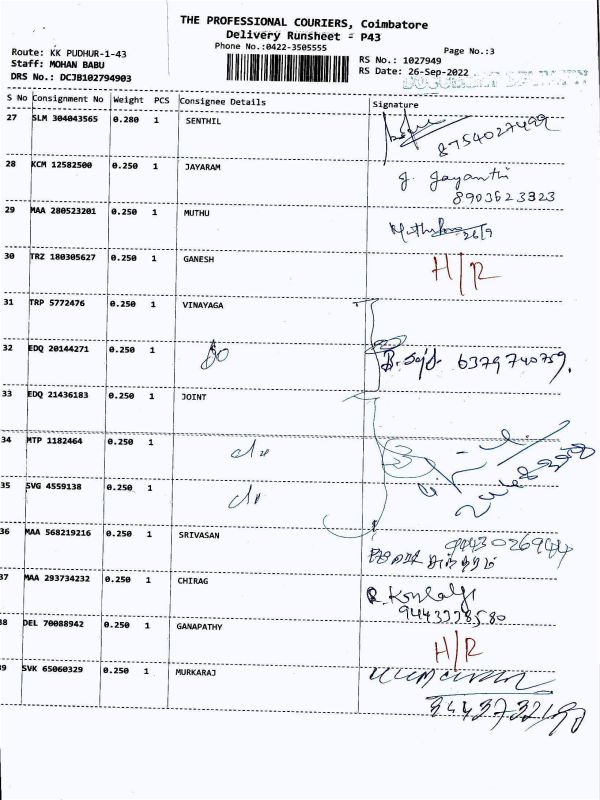 THE PROFESSIONAL COURIERS, Coimbatore
Delivery Runsheet - P43
Phone No.:0422-3505555
Page No.:3
Route: KK PUDHUR-1-43
Staff: MOHAN BABU
DRS No.: DCJB102794903
RS No.: 1027949
RS Date: 26-Sep-2022
S No Consignment No Weight PCS Consignee Details Signature
27 SLM 304043565 0.280 1 SENTHIL
8754027499
28 KCM 12582500 0.250 1 JAYARAM
J. Jayanthi
8903623323
29 MAA 280523201 0.250 1 MUTHU
26/9
30 TRZ 180305627 0.250 1 GANESH H/R
31 TRP 5772476 0.250 1 VINAYAGA
32 EDQ 20144271 0.250 1 do
6379740759.
33 EDQ 21436183 0.250 1 JOINT
34 MTP 1182464 0.250 1 do
35 SVG 4559138 0.250 1 do
36 MAA 568219216 0.250 1 SRIVASAN
9443026944
37 MAA 293734232 0.250 1 CHIRAG
9443778580
38 DEL 70088942 0.250 1 GANAPATHY H/R
39 SVK 65060329 0.250 1 MURKARAJ